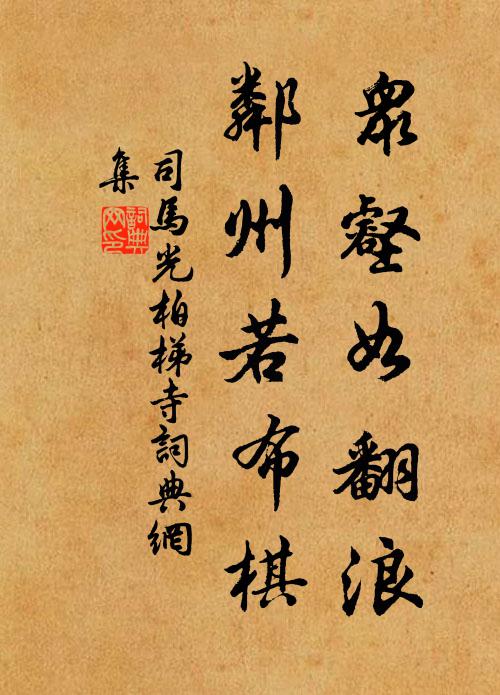 衆壑如翻浪
鄰州若布棋
司馬光柏梯寺詞典網
集
詞典網印